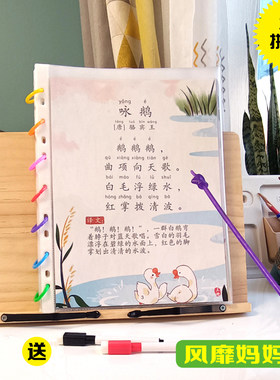 拼
yǒng é
咏 鹅
táng luò bīn wáng
[唐] 骆 宾 王
é é é
鹅，鹅，鹅，
qū xiàng xiàng tiān gē
曲 项 向 天 歌。
bái máo fú lǜ shuǐ
白 毛 浮 绿 水，
hóng zhǎng bō qīng bō
红 掌 拨 清 波。
译文
“鹅！鹅！鹅！”，一群白鹅弯
着脖子对蓝天歌唱。雪白的羽毛
漂浮在碧绿的水面上，红色的脚
掌划出清清的水波。
送
风靡妈妈